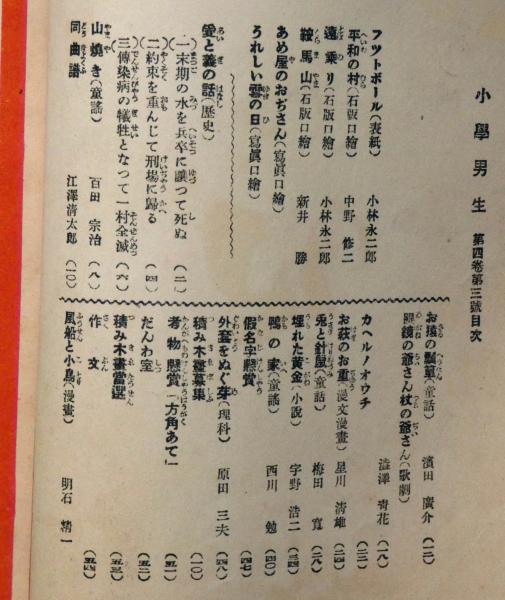 小學男生 第四卷第三號目次
フツトボール（表紙） 小林永二郎
平和の村（石版口繪） 中野修二
遠乘り（石版口繪） 小林永二郎
鞍馬山（石版口繪） 新井勝
あめ屋のおぢさん（寫眞口繪）
うれしい雪の日（寫眞口繪）
愛と義の話（歷史）
一末期の水を兵卒に讓つて死ぬ（二）
二約束を重んじて刑場に歸る（四）
三傳染病の犧牲となつて一村全滅（六）
山燒き（童謠） 百田宗治（八）
同曲譜 江澤清太郎（一〇）
お猿の瓢簞（童話） 濱田廣介（一二）
眼鏡の爺さん杖の爺さん（歌劇） 澁澤青花（一八）
カヘルノオウチ（二三）
お萩のお重（漫文漫畫） 星川清雄（二四）
兎と針鼠（童話） 梅田寬（二八）
埋れた黄金（小說） 宇野浩二（三四）
鴨の家（童謠） 西川勉（四〇）
假名字懸賞（四七）
外套をぬぐ芽（理科） 原田三夫（四八）
積み木畫募集（一〇）
考物懸賞「方角あて」（五一）
だんわ室（五二）
積み木畫當選（五三）
作文（五三）
風船と小鳥（漫畫） 明石精一（五四）